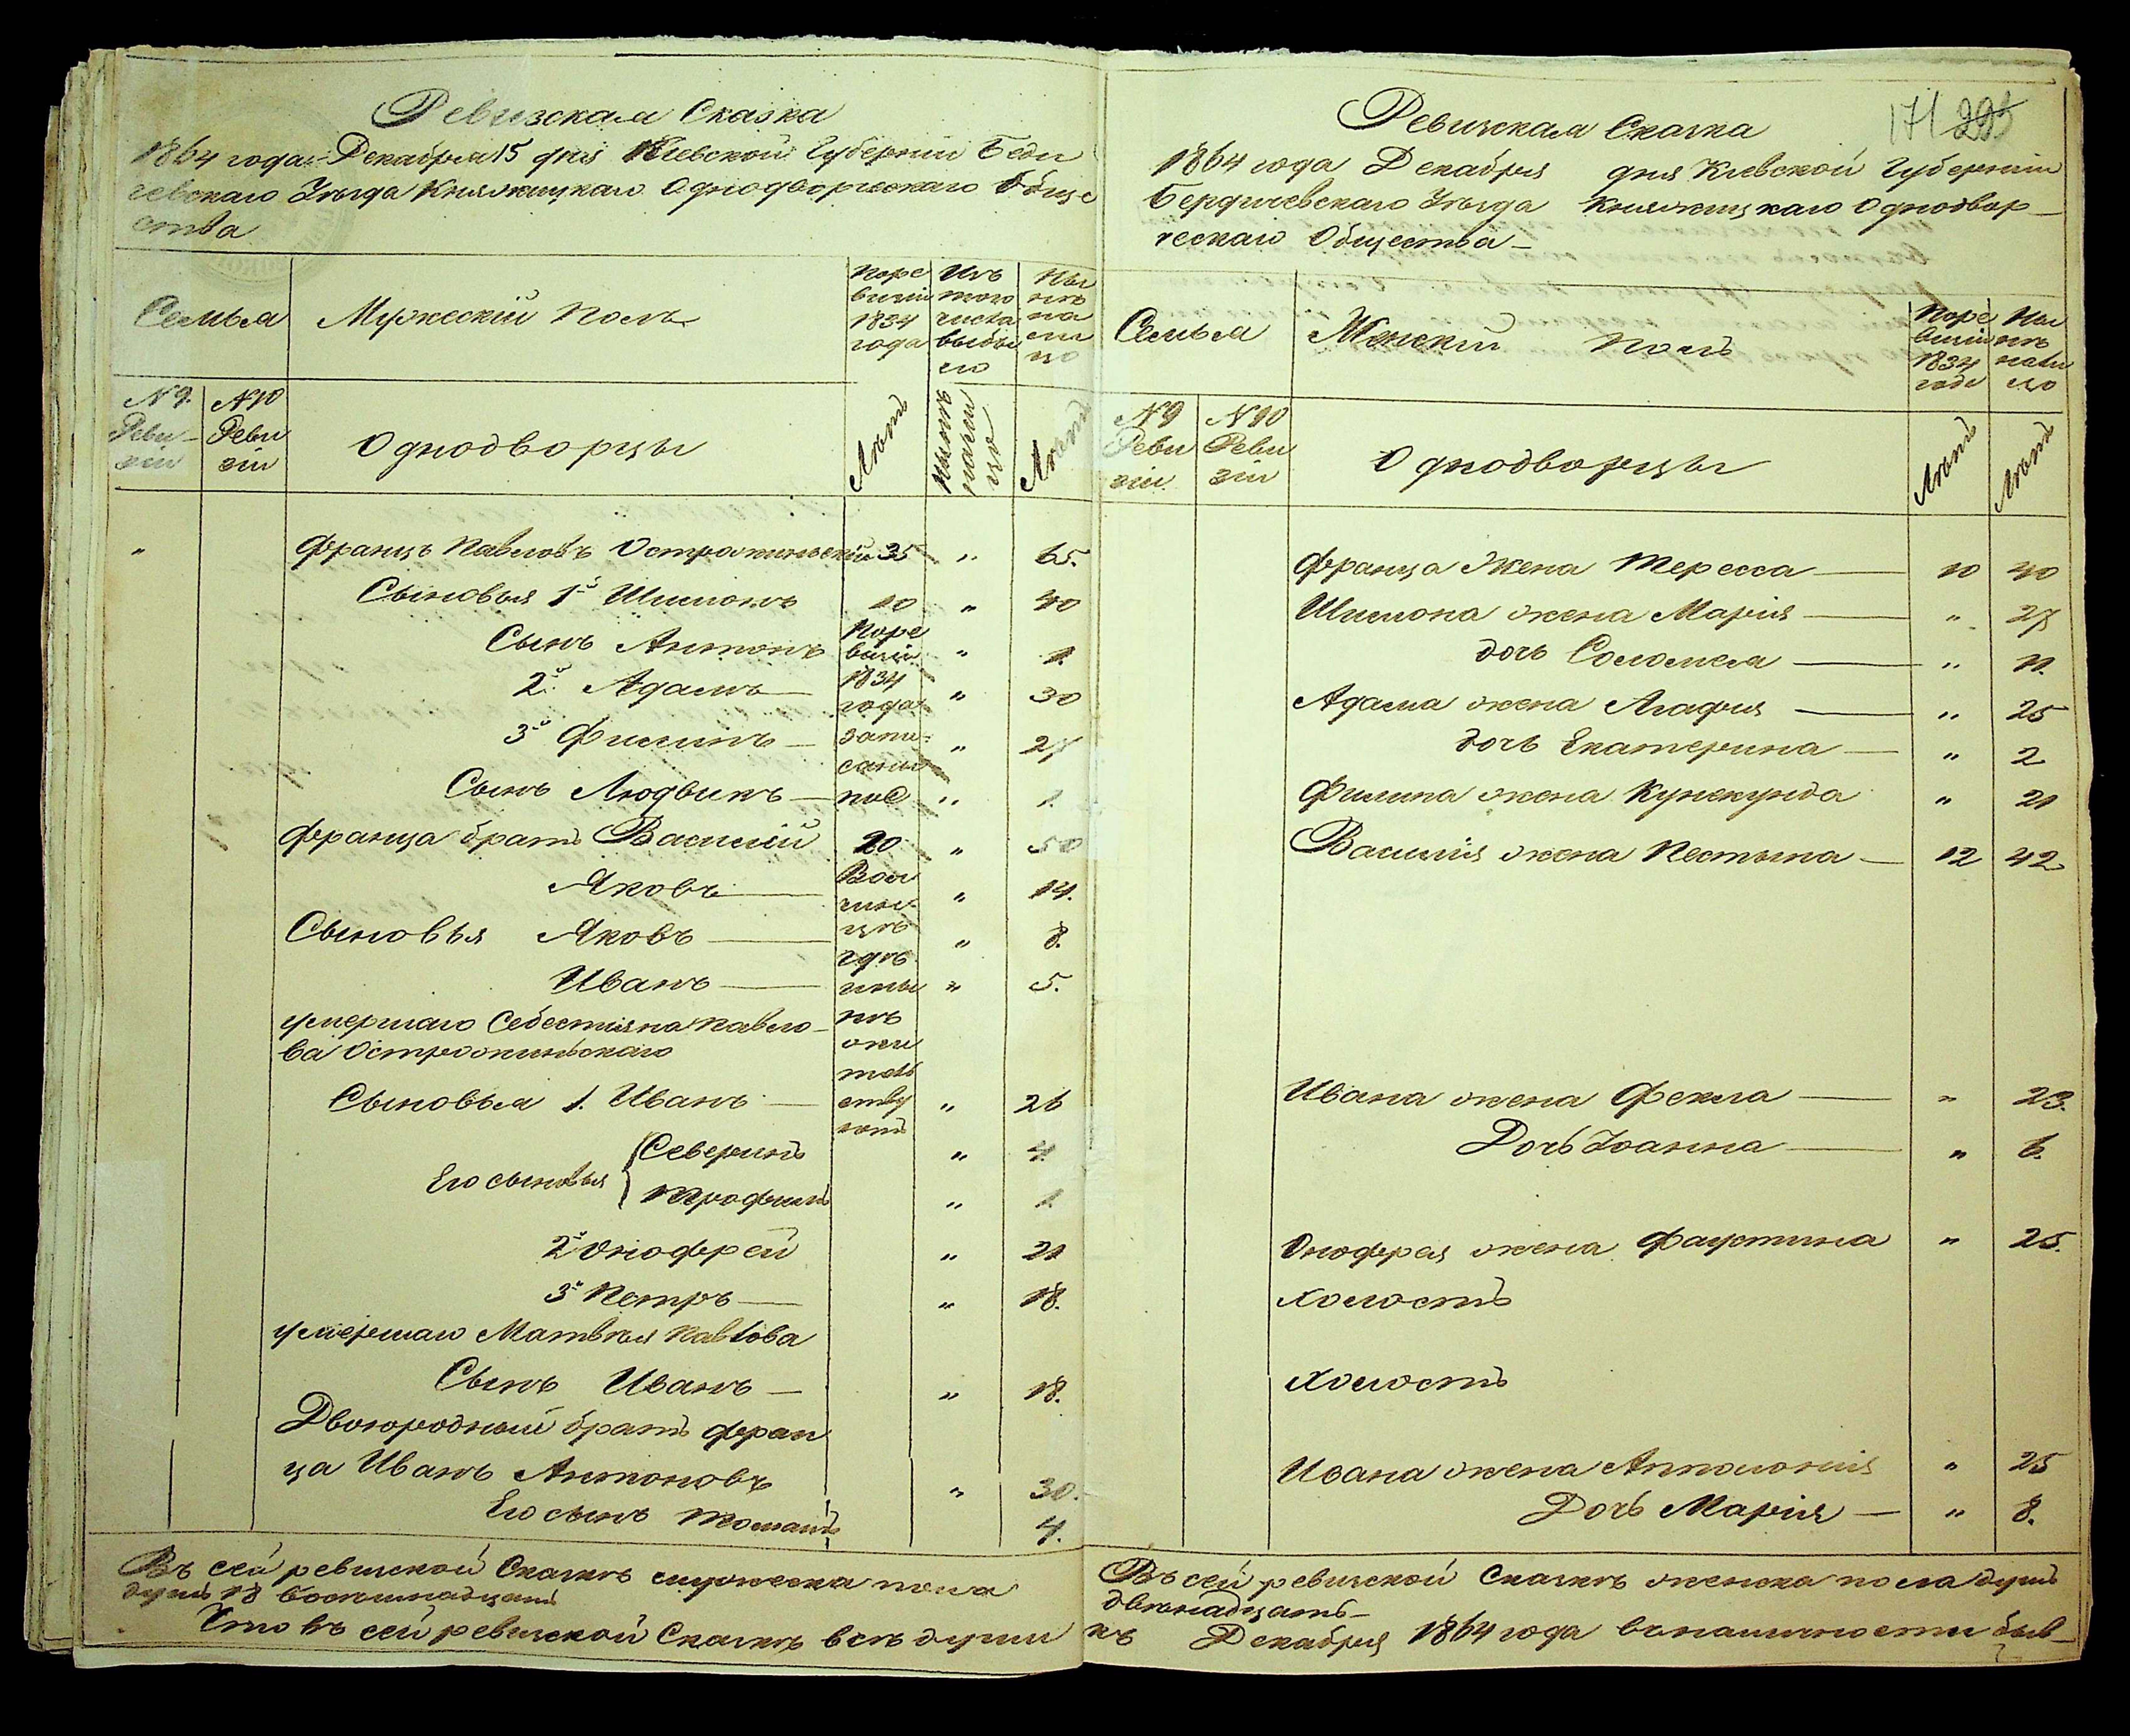 Ревизская Сказка
1864 года Декабря 15 дня Кіевской Губерніи Беди
чевскаго Уѣзда Княжицкаго Однодворческаго Обще
ства
Семья
Мужескій Полъ
Поре
визіи
1834
года
Изъ
того
числа
выбы
ло
Ны
нѣ
на
ли
цо
№ 9.
Реви-
зіи
№ 10
Реви
зіи
Однодворцы
Лѣтъ
Лѣтъ
Францъ Павловъ Острожинскій 35 " 65.
Сыновья 1й Шимонъ 10 " 40
Сынъ Антонъ " 1.
2й Адамъ — " 30
3й Филипъ — " 27
Сынъ Людвикъ — " 1.
Поре
визіи
1834
года
запи-
саны
пос
Франца братъ Василій 20 " 50
Яковъ — " 14.
Сыновья Яковъ — " 8.
Иванъ — " 5.
умершаго Себестіяна Павло-
ва Острожинскаго
Сыновья 1. Иванъ — " 26
гдѣ
ины
нѣ
жи
тель
ству
ютъ
Его сыновья Северинъ " 4.
Трофимъ " 1.
2й Онофрей " 21
3й Петръ — " 18.
умершаго Матвѣя Павлова
Сынъ Иванъ — " 18.
Двоюродный братъ Фран
ца Иванъ Антоновъ " 30.
Его сынъ Томашъ 4.
Въ сей ревизской Сказкѣ мужеска пола
душъ 18 восемнадцать
Что въ сей ревизской Сказкѣ всѣ души
171 295
Ревизская Сказка
1864 года Декабря дня Кіевской Губерніи
Бердичевскаго Уѣзда Княжицкаго Однодвор-
ческаго Общества-
Семья
Женскій Полъ
Поре
визіи
1834
года
Ны
нѣ
нали
цо
№ 9
Реви
зіи.
№ 10
Реви
зіи
Однодворцы
Лѣтъ
Лѣтъ
Франца Жена Тересса — 10 40
Шимона жена Марія — " 27
дочь Соломея — " 11.
Адама жена Агафия — " 25
дочь Екатерина — " 2
Филипа жена Кунекунда " 21
Василія жена Нестына — 12 42
Ивана жена Фекла — " 23.
Дочь Іоанна — " 6.
Онофрея жена Фаустина " 25.
Холостъ
Холостъ
Ивана жена Апполонія " 25
Дочь Марія — " 8.
Въ сей ревизской Сказкѣ женска пола душъ
двѣнадцать-
къ Декабря 1864 года вналичности быв-